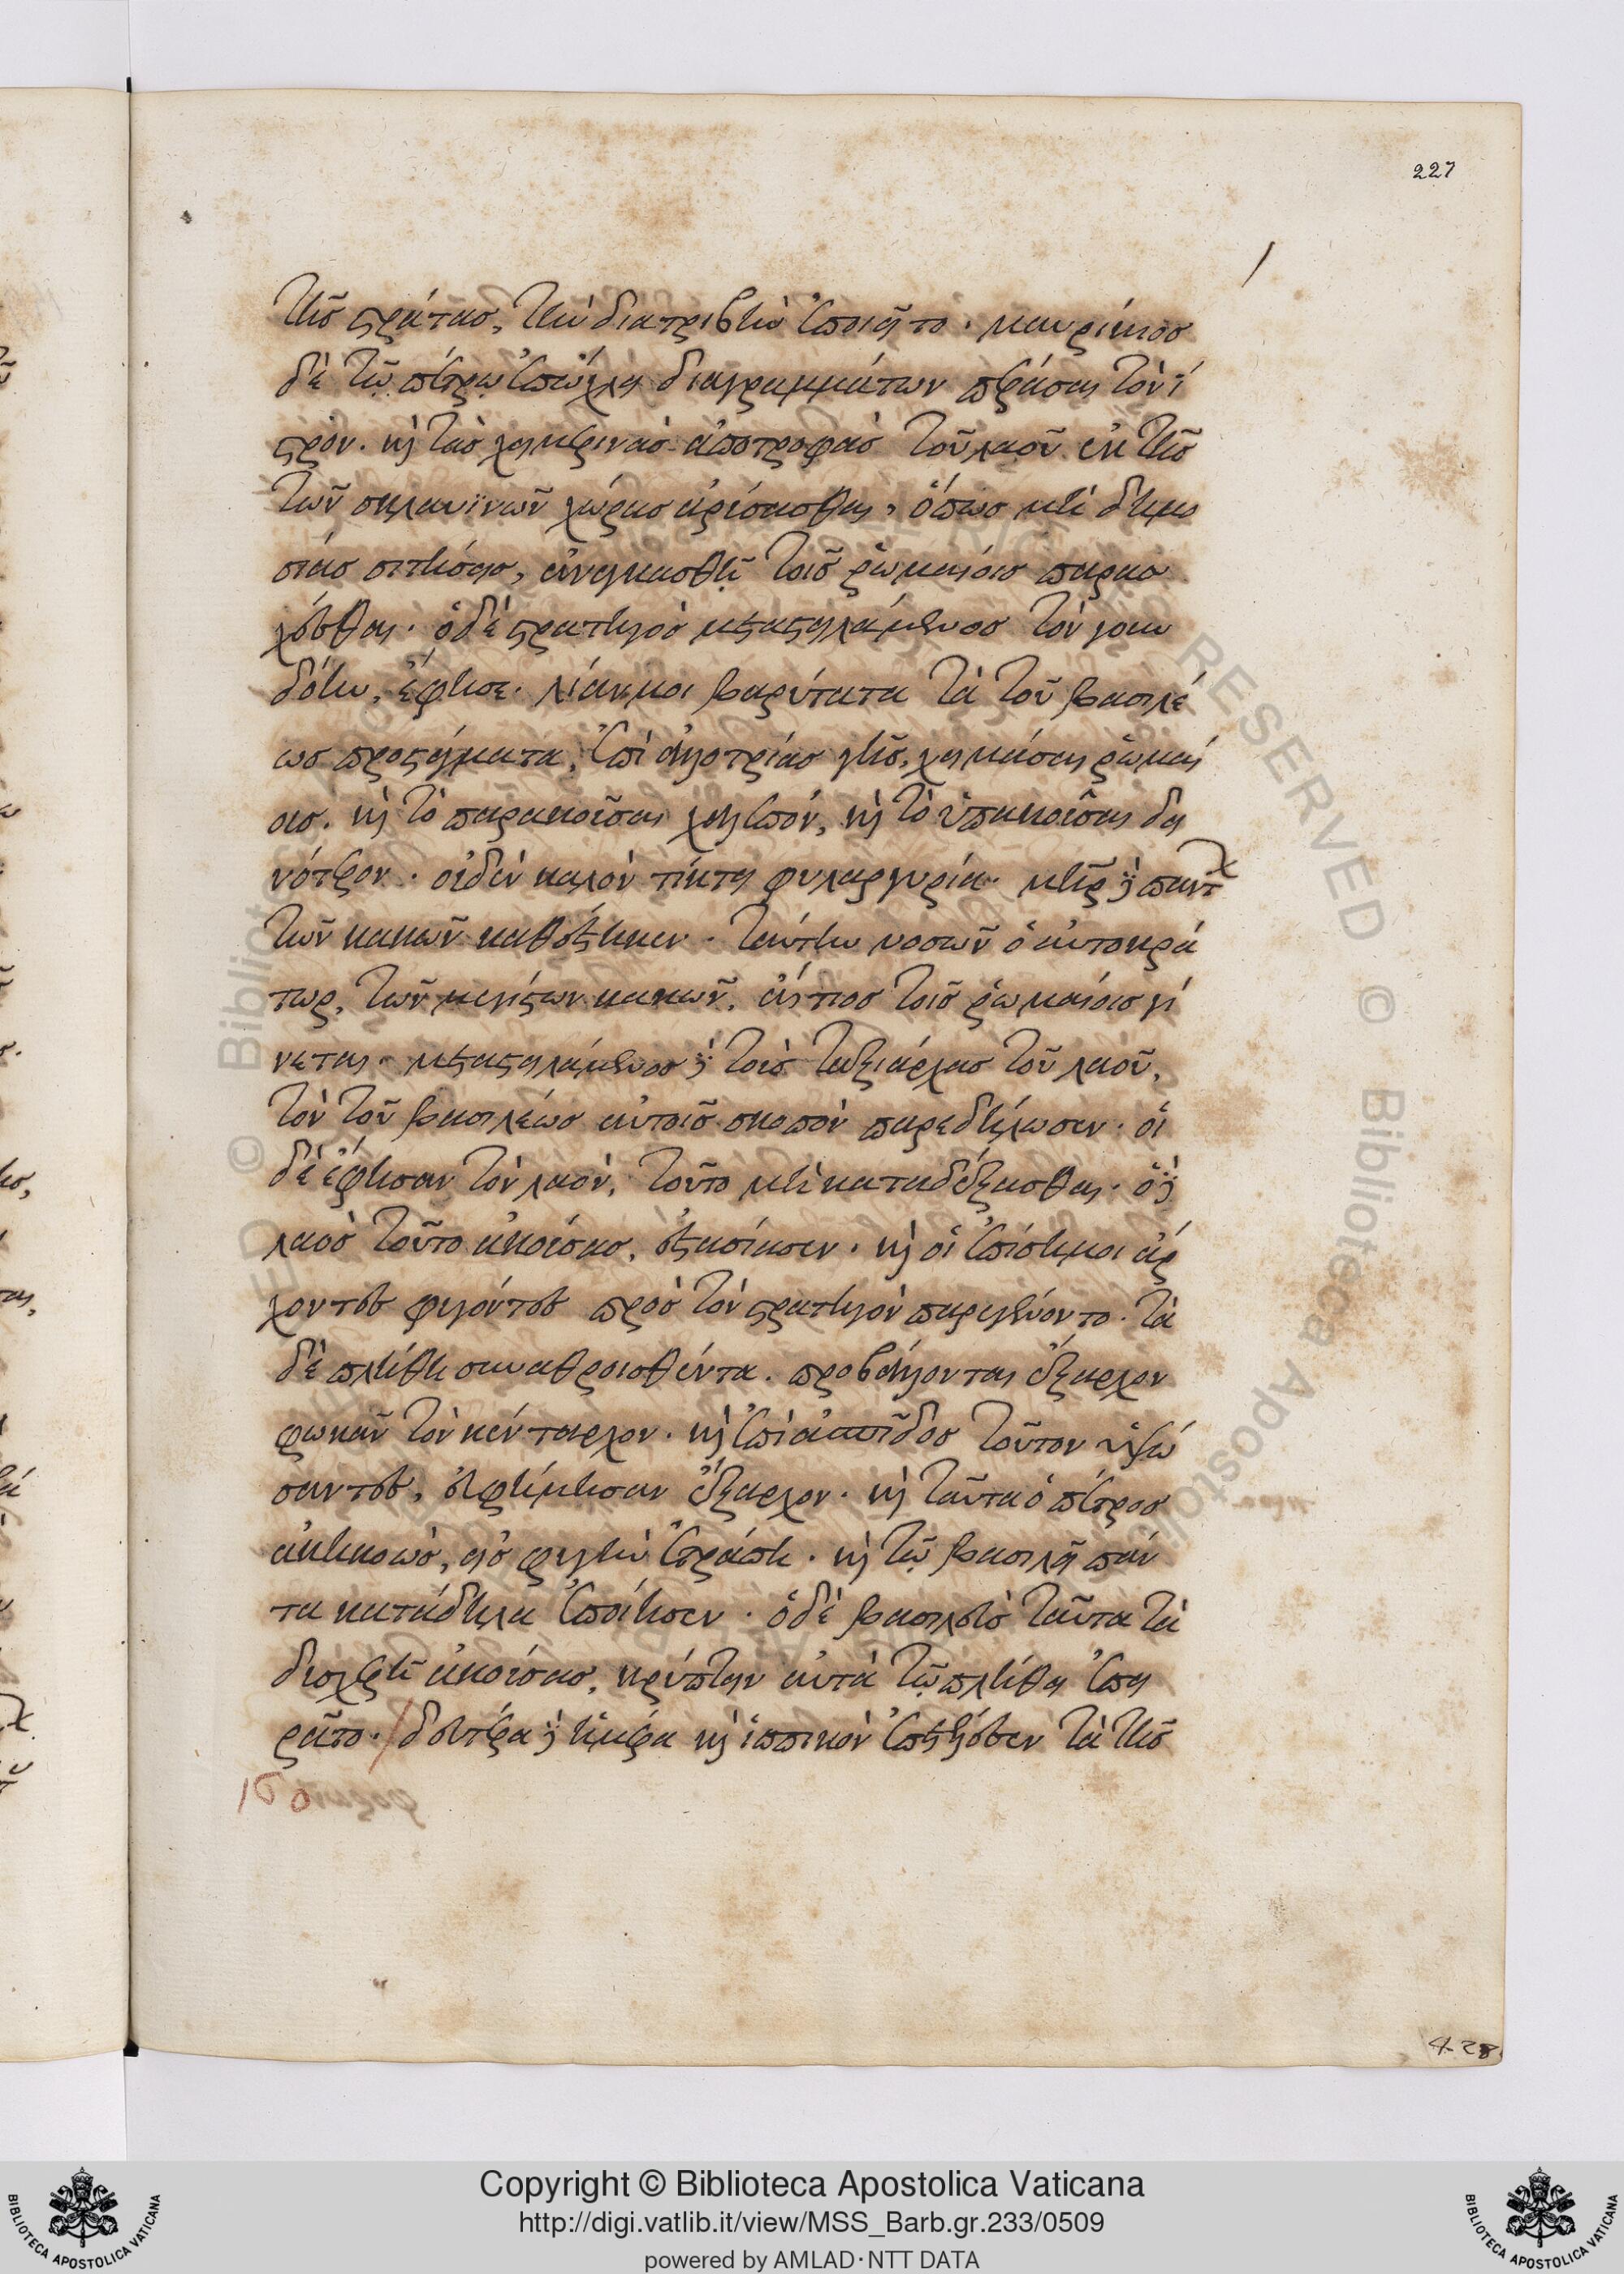 227
τῆς στράτας, τὴν διατριβὴν ἐποιεῖτο. μαυρίκιος
δὲ τῷ πέτρῳ ἐπώχλει διαγραμμάτων περάσαι τὸν ἴ
στρον. καὶ τὰς χειμερινὰς ἀποτροφὰς τοῦ λαοῦ ἐκ τῆς
τῶν σκλαυϊνῶν χώρας ἀρύσασθαι, ὅπως μὴ δημο
σίας σιτήσεις, ἀναγκασθῇ τοῖς ῥωμαίοις παρασ
χέσθαι. ὁ δὲ στρατηγὸς μεταστειλάμενος τὸν γου
δούην, ἔφησε. λίαν μοι βαρύτατα τὰ τοῦ βασιλέ
ως προστάγματα, ἐπὶ ἀλλοτρίας γῆς, χειμάσαι ῥωμαί
οις. καὶ τὸ παρακοῦσαι χαλεπόν, καὶ τὸ ὑπακοῦσαι δει
νότερον. οὐδὲν καλὸν τίκτει φυλαργυρία. μήτηρ δὲ πάντων
τῶν κακῶν καθέστηκεν. ταύτην νοσῶν ὁ αὐτοκρά
τωρ, τῶν μεγίστων κακῶν, αἴτιος τοῖς ῥωμαίοις γί
νεται. μεταστειλάμενος δὲ τοὺς ταξιάρχας τοῦ λαοῦ,
τὸν τοῦ βασιλέως αὐτοῖς σκοπὸν παρεδήλωσεν. οἱ
δὲ ἔφησαν τὸν λαὸν, τοῦτο μὴ καταδέξασθαι. ὁ δὲ
λαὸς τοῦτο ἀκούσας, ἐστασίασεν. καὶ οἱ ἐπίσημοι ἄρ
χοντες φυγόντες πρὸς τὸν στρατηγὸν παρεγένοντο. τὰ
δὲ πλήθη συναθροισθέντα. προβάλλονται ἔξαρχον
φωκᾶν τὸν κένταρχον. καὶ ἐπὶ ἀσπίδος τοῦτον ὑψώ
σαντες, εὐφήμησαν ἔξαρχον. καὶ ταῦτα ὁ πέτρος
ἀκηκοὼς, εἰς φυγὴν ἐτράπη. καὶ τῷ βασιλεῖ πάν
τα κατάδηλα ἐποίησεν. ὁ δὲ βασιλεὺς ταῦτα τὰ
δυσχερῆ ἀκούσας, κρύπτειν αὐτὰ τῷ πλήθει ἐπει
ρᾶτο. δευτέρα δὲ ἡμέρα καὶ ἱππικὸν ἐπετέλεσεν τὰ τῆς
16
4-28
Copyright © Biblioteca Apostolica Vaticana
http://digi.vatlib.it/view/MSS_Barb.gr.233/0509
powered by AMLAD·NTT DATA